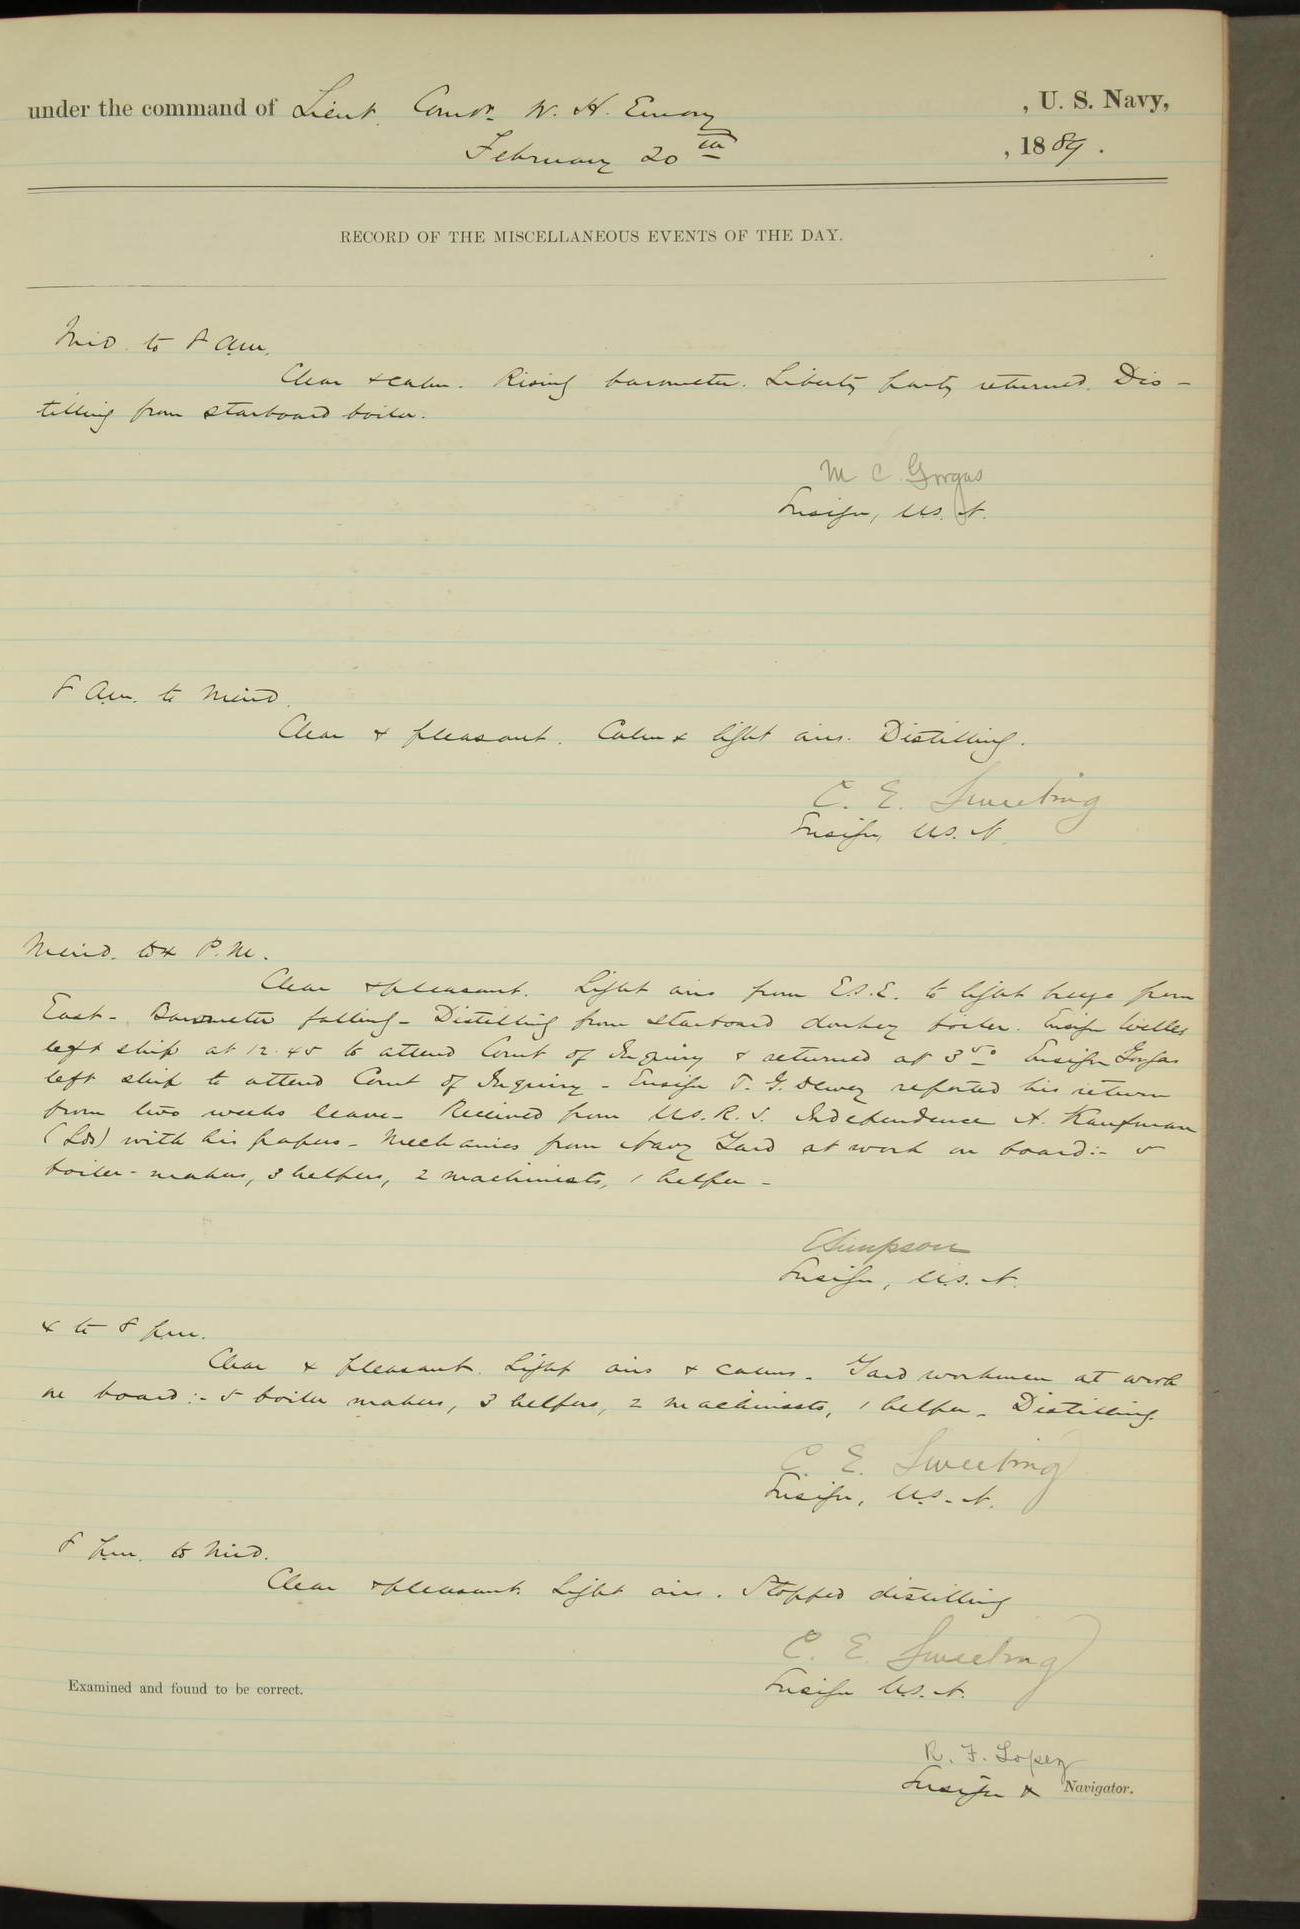 under the command of Lieut. Comdr. W. H. Emory, U. S. Navy,
February 20th, 1889.
RECORD OF THE MISCELLANEOUS EVENTS OF THE DAY.
Mid. to 8 a.m.
Clear & calm. Rising barometer. Liberty party returned. Dis-
tilling from starboard boiler.
M C Gorgas
Ensign, U.S.N.
8 a.m. to Merid.
Clear & pleasant. Calm & light airs. Distilling.
C. E. Sweeting
Ensign, U.S.N.
Merid. to 4 P.M.
Clear & pleasant. Light airs from E.S.E. to light breeze from
East - Barometer falling - Distilling from starboard donkey boiler. Ensign Welles
left ship at 12.45 to attend Court of Inquiry & returned at 3 50 Ensign Gorgas
left ship to attend Court of Inquiry - Ensign T. G. Dewey reported his return
from two weeks leave - Received from U.S.R.S. Independence A. Kaufman
(Lds) with his papers - Mechanics from Navy Yard at work on board:- 5
boiler-makers, 3 helpers, 2 machinists, 1 helper -
E Simpson
Ensign, U.S.N.
4 to 8 p.m.
Clear & pleasant. Light airs & calms. Yard workmen at work
on board:- 5 boiler makers, 3 helpers, 2 machinists, 1 helper - Distilling.
C. E. Sweeting
Ensign, U.S.N.
8 p.m. to Mid.
Clear & pleasant. Light airs. Stopped distilling
C. E. Sweeting
Ensign U.S.N.
Examined and found to be correct.
R. F. Lopez
Ensign & Navigator.